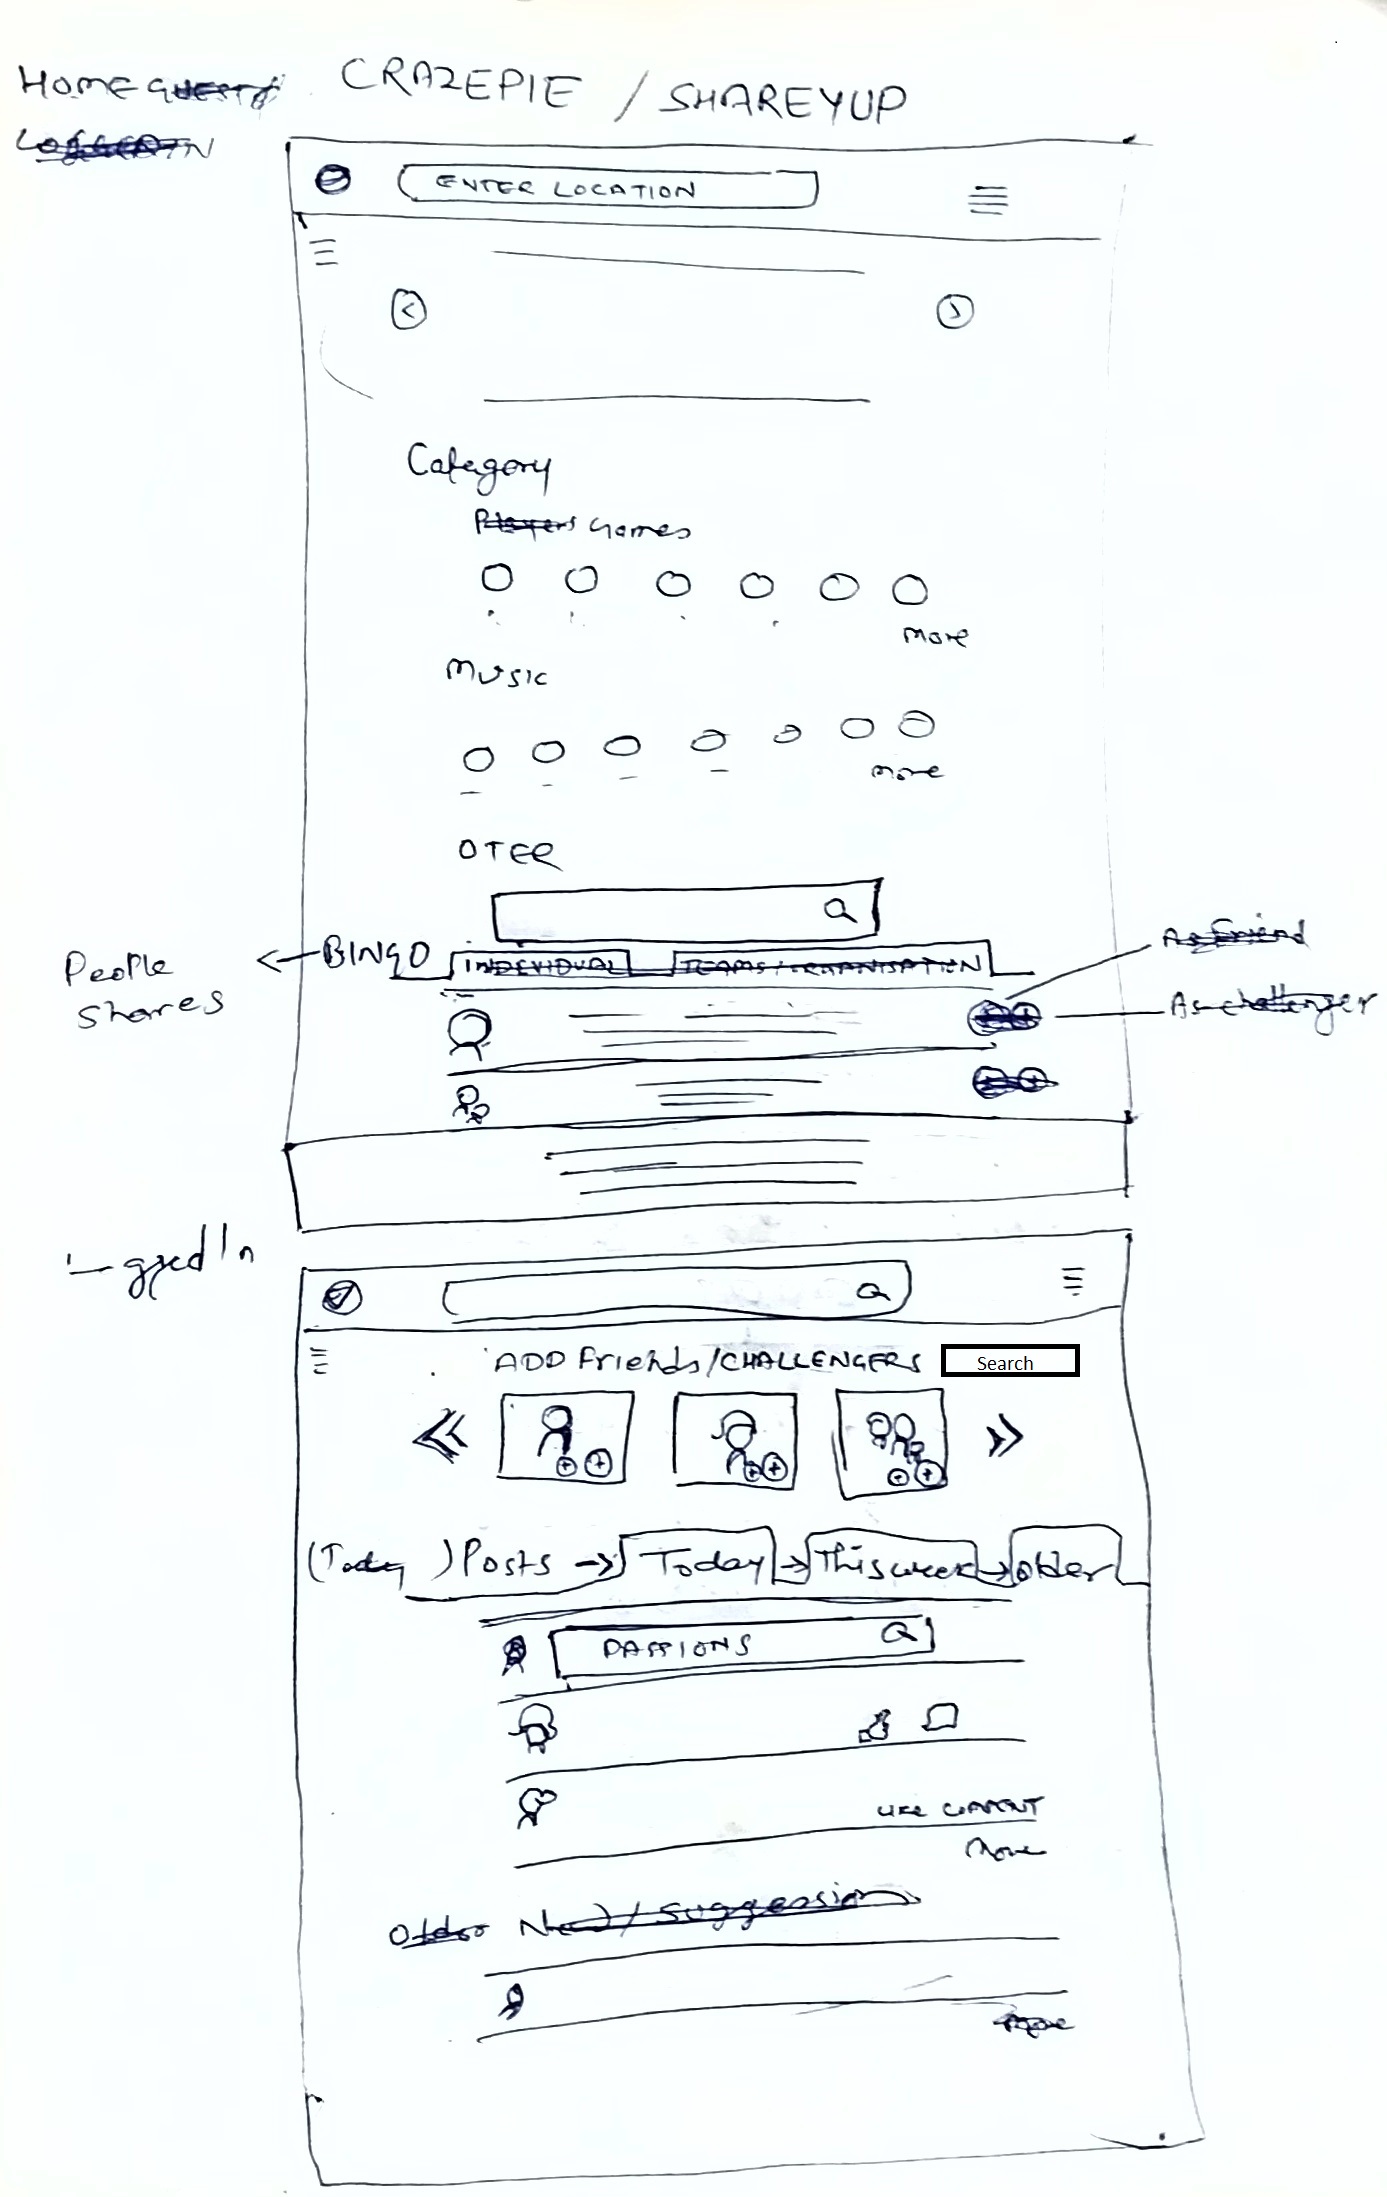 HOME GUEST/ CRAZEPIE / SHAREYUP
LOGGED IN
ENTER LOCATION
Category
Players Games
More
Music
more
OTER
People shares
BINGO
INDEVIDUAL
TEAMS / ORGANISATION
As Friend
As challenger
Logged In
ADD Friends/CHALLENGERS
Search
(Today ) Posts → Today → This week → Older
PASSIONS
LIKE COMMENT
More
Older Need / Suggession
More